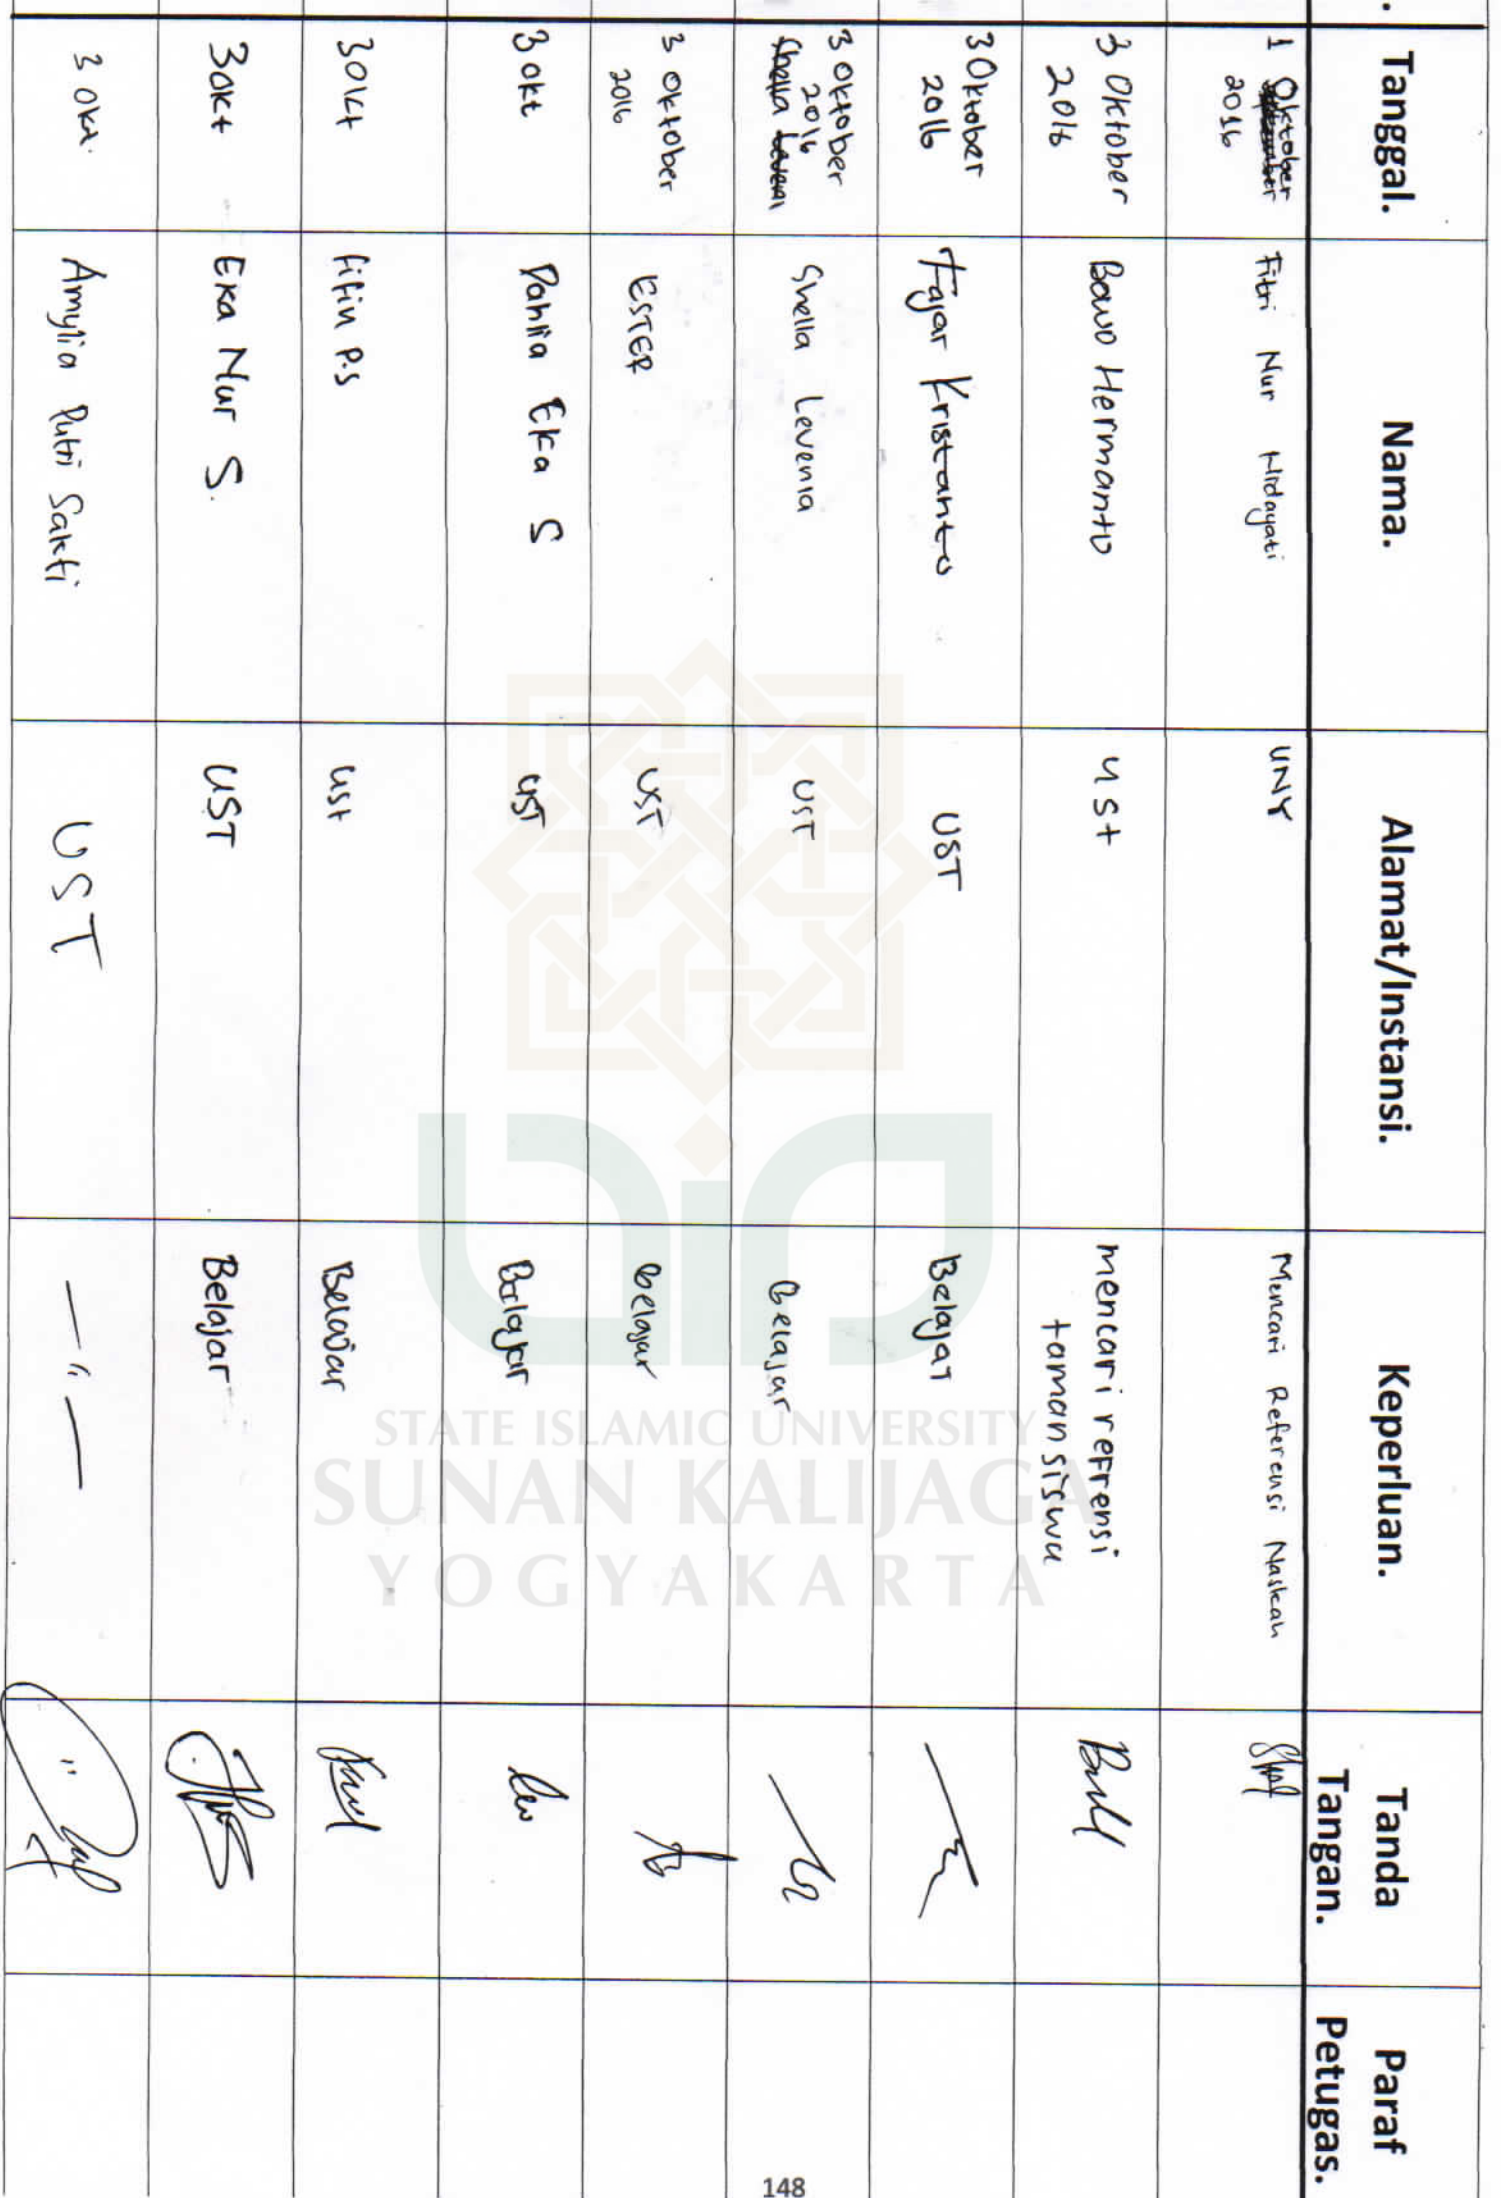 Tanggal. Nama. Alamat/Instansi. Keperluan. Tanda Tangan. Paraf Petugas.
1 Oktober 2016 Fitri Nur Hidayati UNY Mencari Referensi Naskah
3 Oktober 2016 Bowo Hermanto UST mencari refrensi tamansiswa
3 Oktober 2016 Fajar Kristanto UST Belajar
3 Oktober 2016 Shella Levenia Shella Levenia UST Belajar
3 Oktober 2016 ESTER UST belajar
3 okt Dahlia Eka S UST Belajar
3 Okt fifin P.S Ust Belajar
3 Okt Eka Nur S. UST Belajar
3 Okt. Amylia Putri Sakti UST — " —
STATE ISLAMIC UNIVERSITY
SUNAN KALIJAGA
YOGYAKARTA
148